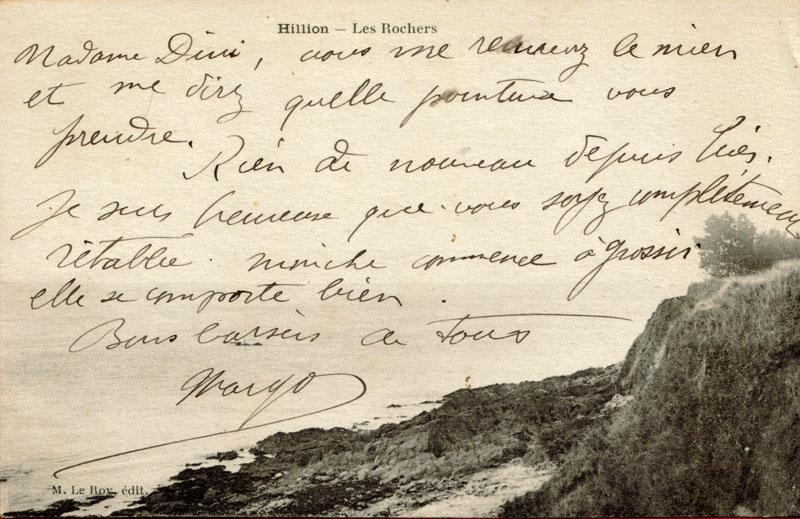 Hillion — Les Rochers
Madame Dini, vous me remenez le mien
et me direz quelle pointure vous
prendre.
Rien de nouveau depuis hier.
Je suis heureuse que vous soyez complètement
rétablie. commence à grossir
elle se comporte bien.
Bons baisers de tous
Margo
M. Le Roy, édit.